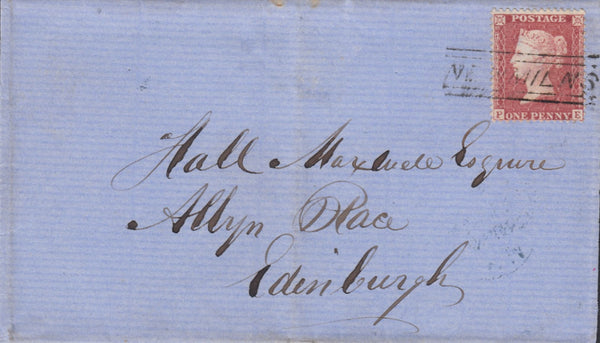 POSTAGE
P ONE PENNY E
Hall Maxwell Esquire
Allyn Place
Edinburgh